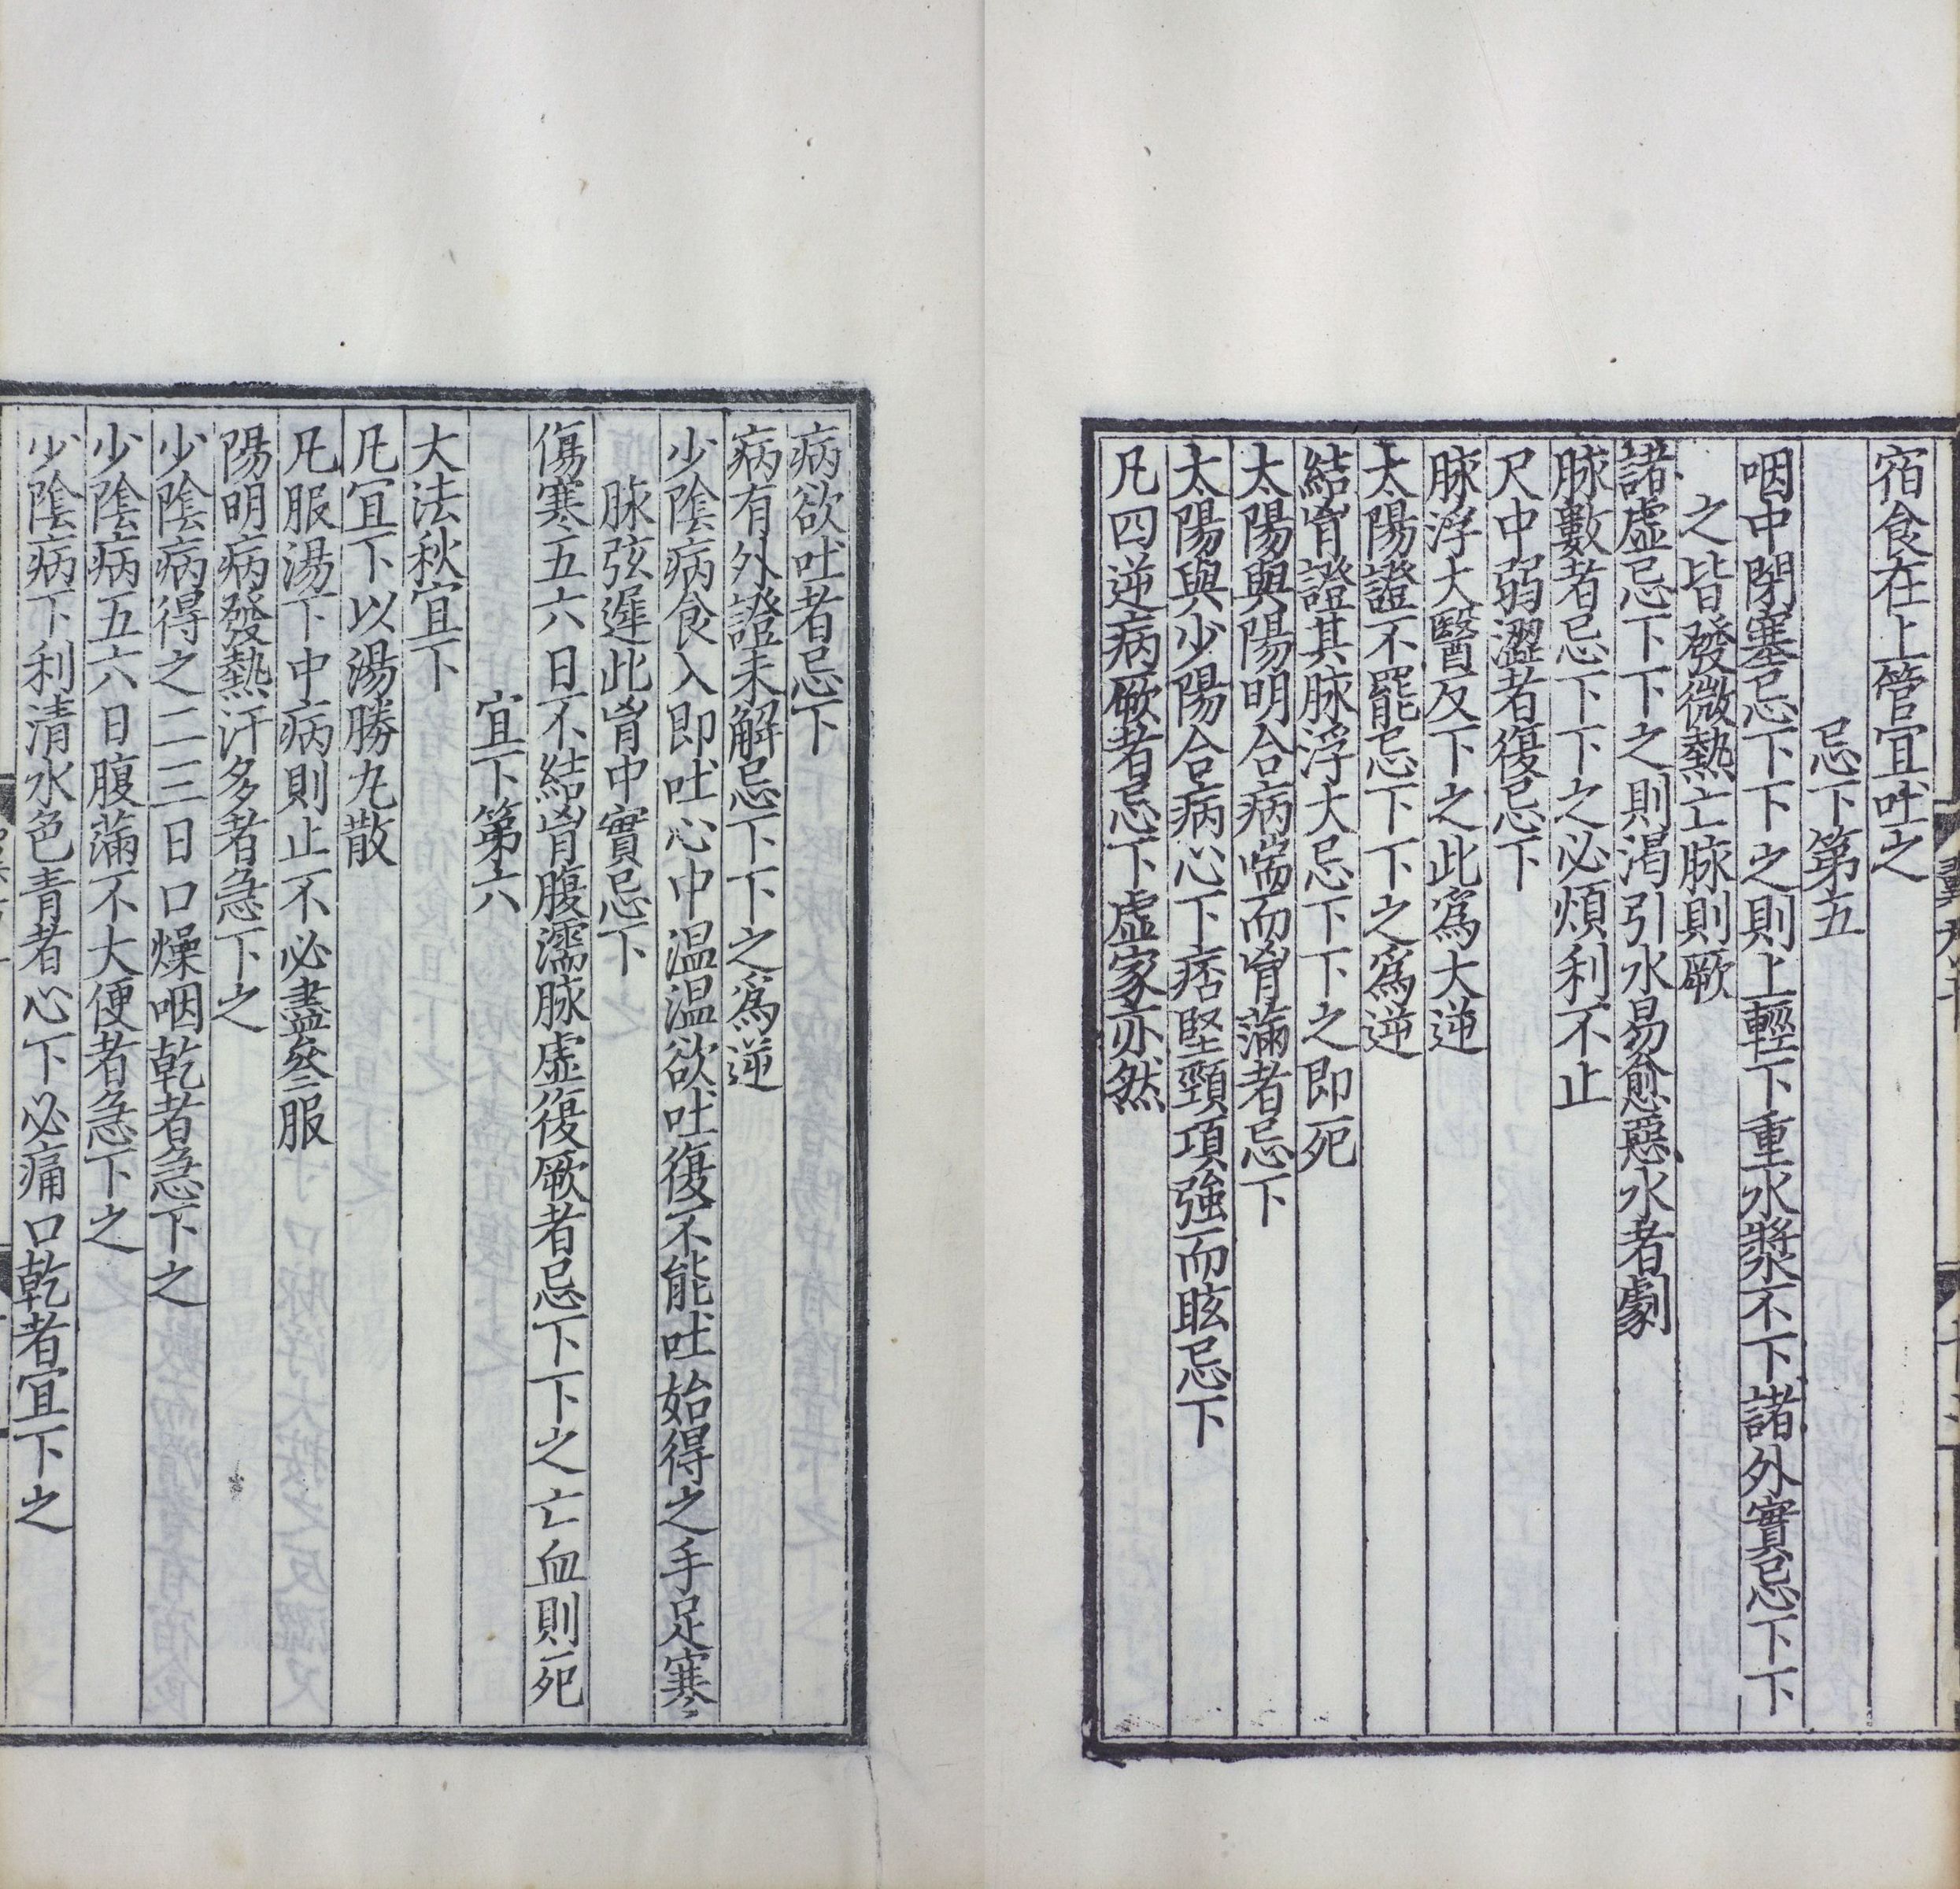 宿食在上管宜吐之
忌下第五
咽中閉塞忌下下之則上輕下重水漿不下諸外實忌下下
之皆發微熱亡脉則厥
諸虛忌下下之則渴引水易愈惡水者劇
脉數者忌下下之必煩利不止
尺中弱澀者復忌下
脉浮大醫反下之此爲大逆
太陽證不罷忌下下之爲逆
結胷證其脉浮大忌下下之即死
太陽與陽明合病喘而胷滿者忌下
太陽與少陽合病心下痞堅頸項強而眩忌下
凡四逆病厥者忌下虛家亦然
病欲吐者忌下
病有外證未解忌下下之爲逆
少陰病食入即吐心中温温欲吐復不能吐始得之手足寒
脉弦遲此胷中實忌下
傷寒五六日不結胷腹濡脉虛復厥者忌下下之亡血則死
宜下第六
大法秋宜下
凡宜下以湯勝丸散
凡服湯下中病則止不必盡叁服
陽明病發熱汗多者急下之
少陰病得之二三日口燥咽乾者急下之
少陰病五六日腹滿不大便者急下之
少陰病下利清水色青者心下必痛口乾者宜下之